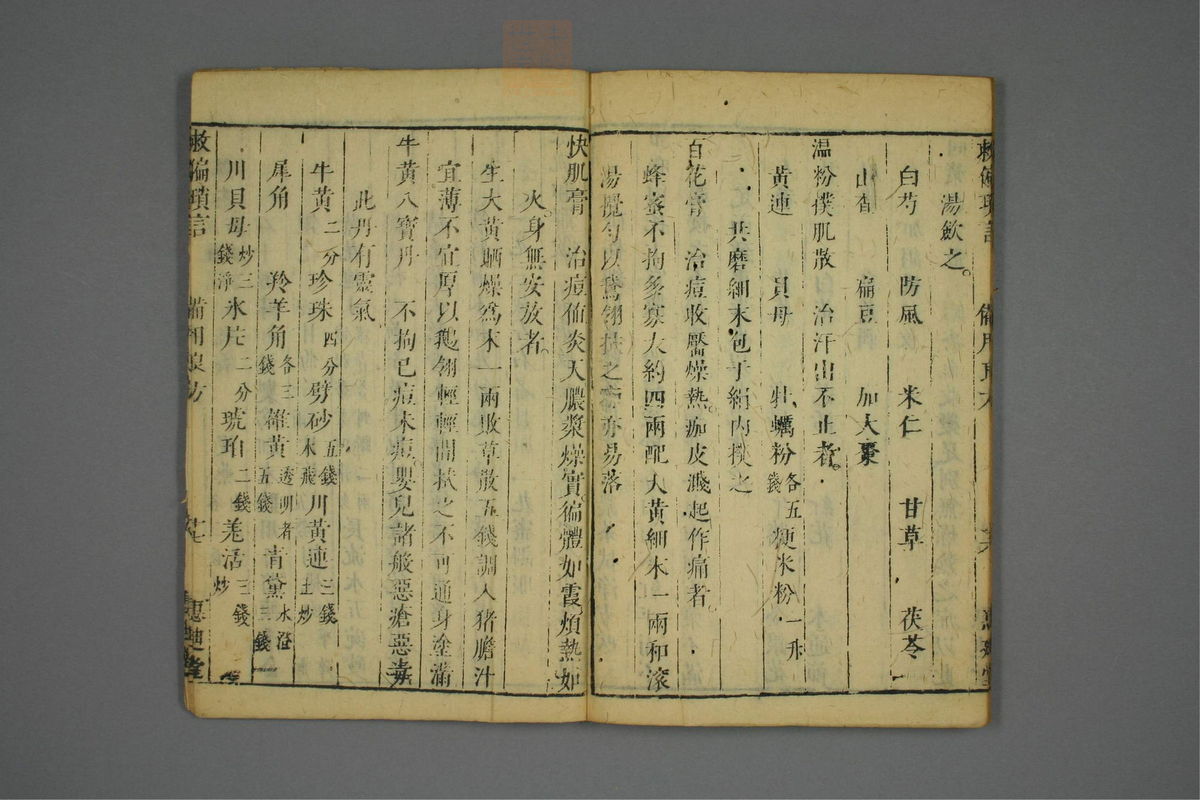 湯飲之。
白芍　防風　米仁　甘草　茯苓
山查　扁豆　加大棗
温粉撲肌散　治汗出不止者。
黃連　貝母　牡蠣粉各五錢　粳米粉一升
共磨細末包于絹內撲之
白花膏　治痘收靨燥熱痂皮濺起作痛者。
蜂蜜不拘多寡大約四兩配大黃細末一兩和滾
湯攪勻以鵞翎扶之痂亦易落
快肌膏　治痘佈炎天膿漿燥實徧體如霞煩熱如
火身無安放者。
生大黃晒燥爲末一兩敗草散五錢調入猪膽汁
宜薄不宜厚以鵝翎輕輕間拭之不可通身塗滿
牛黃八寶丹　不拘已痘未痘嬰兒諸般惡瘡惡毒
此丹有靈氣
牛黃二分　珍珠四分　劈砂五錢水飛　川黃連三錢土炒
犀角　羚羊角各三錢　雄黃透明者五錢　青黛水澄三錢
川貝母炒三錢淨　氷片二分　琥珀二錢　羌活三錢炒
救偏瑣言　備用良方　惠迪堂